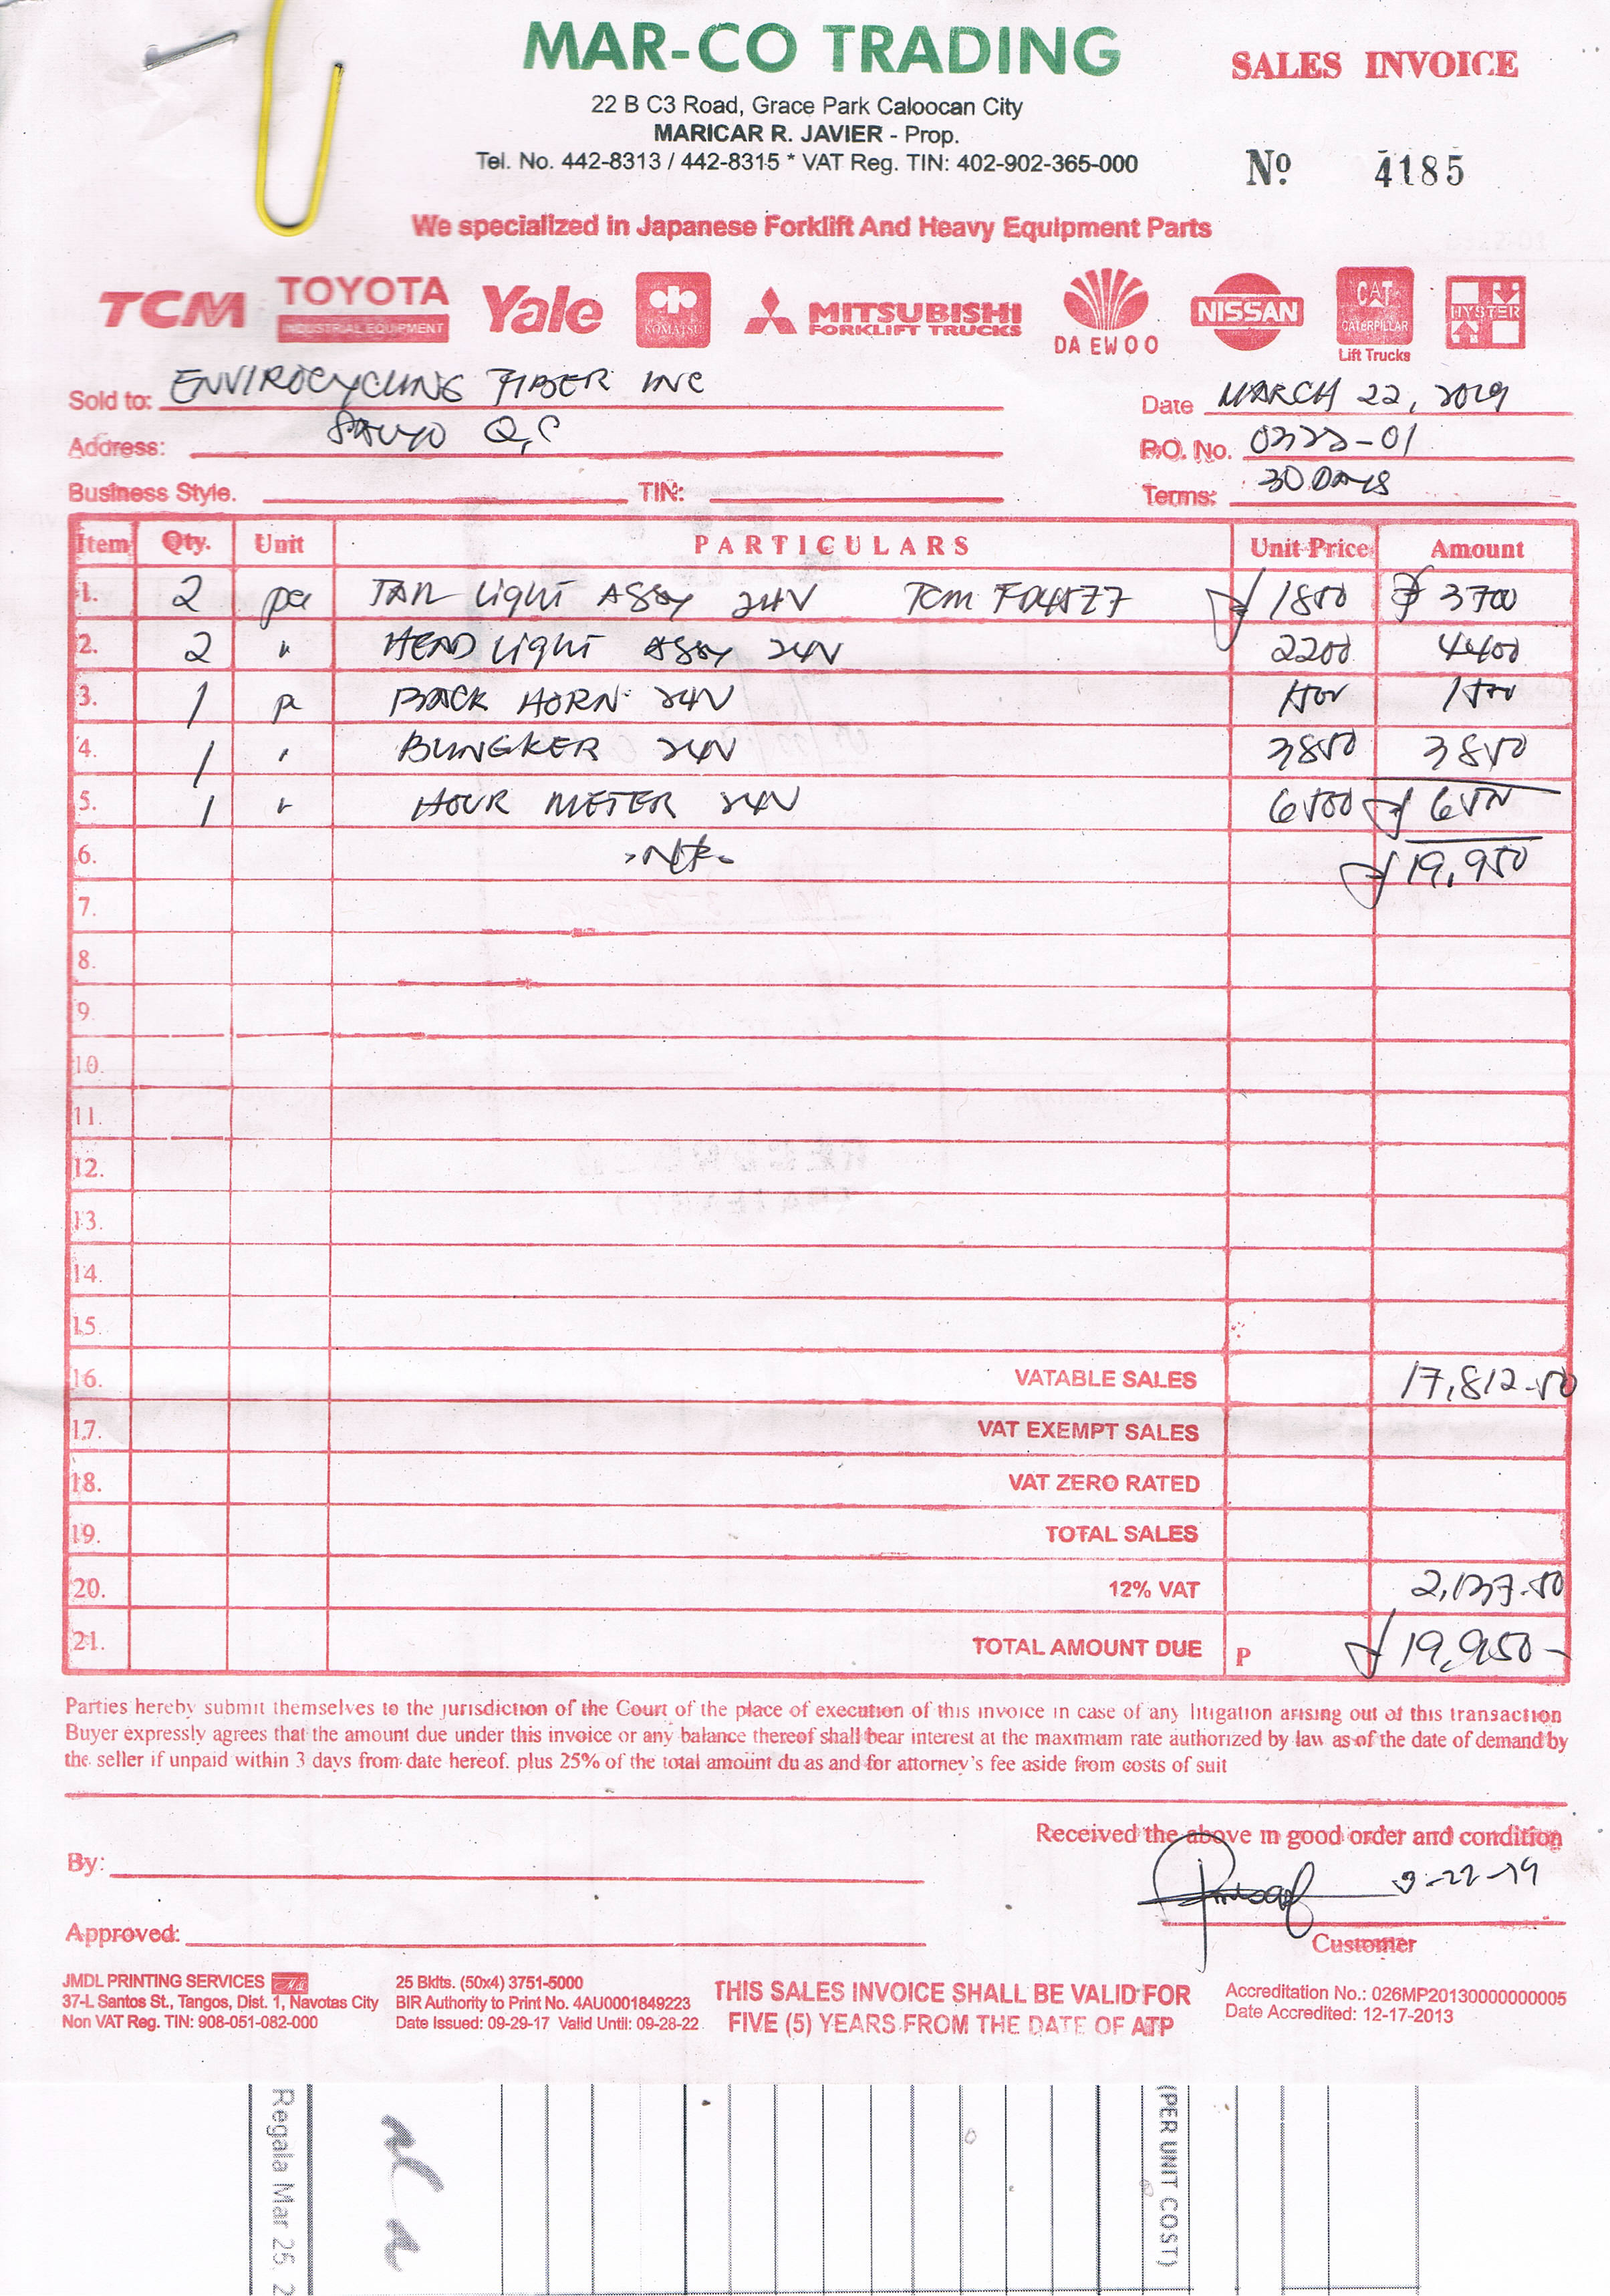 MAR-CO TRADING
SALES INVOICE
22 B C3 Road, Grace Park Caloocan City
MARICAR R. JAVIER - Prop.
Tel. No. 442-8313 / 442-8315 * VAT Reg. TIN: 402-902-365-000
Nº 4185
We specialized in Japanese Forklift And Heavy Equipment Parts
TCM TOYOTA INDUSTRIAL EQUIPMENT Yale KOMATSU MITSUBISHI FORKLIFT TRUCKS DAEWOO NISSAN CAT CATERPILLAR Lift Trucks HYSTER
Sold to: ENVIROCYCLING FIBER INC
Date MARCH 22, 2019
Address: Q.C
P.O. No. 0322-01
Business Style. TIN:
Terms: 30 DAYS
Item Qty. Unit PARTICULARS Unit Price Amount
1. 2 pcs TAIL Light ASSY 24V TCM 1850 ₱ 3700
2. 2 " HEAD Light ASSY 24V 2200 4400
3. 1 pc BACK HORN 24V 1500 1500
4. 1 " 24V 3850 3850
5. 1 " HOUR METER 24V 6500 6500
6. 19,950
7.
8.
9.
10.
11.
12.
13.
14.
15.
16. VATABLE SALES 17,812.50
17. VAT EXEMPT SALES
18. VAT ZERO RATED
19. TOTAL SALES
20. 12% VAT 2,137.50
21. TOTAL AMOUNT DUE P 19,950-
Parties hereby submit themselves to the jurisdiction of the Court of the place of execution of this invoice in case of any litigation arising out of this transaction
Buyer expressly agrees that the amount due under this invoice or any balance thereof shall bear interest at the maximum rate authorized by law as of the date of demand by
the seller if unpaid within 3 days from date hereof. plus 25% of the total amount du as and for attorney's fee aside from costs of suit
Received the above in good order and condition
By:
3-22-19
Approved:
Customer
JMDL PRINTING SERVICES
37-L Santos St., Tangos, Dist. 1, Navotas City
Non VAT Reg. TIN: 908-051-082-000
25 Bklts. (50x4) 3751-5000
BIR Authority to Print No. 4AU0001849223
Date Issued: 09-29-17 Valid Until: 09-28-22
THIS SALES INVOICE SHALL BE VALID FOR
FIVE (5) YEARS FROM THE DATE OF ATP
Accreditation No.: 026MP20130000000005
Date Accredited: 12-17-2013
Regala Mar 26, 2
(PER UNIT COST)